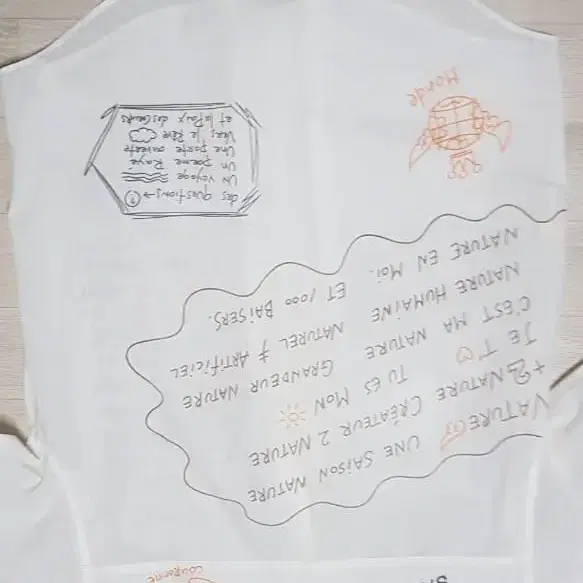 NATURE UNE SAISON NATURE
+2 NATURE CRÉATEUR 2 NATURE
JE T' TU ES MON
C'EST MA NATURE GRANDEUR NATURE
NATURE HUMAINE NATUREL ≠ ARTIFICIEL
NATURE EN MOI. ET 1000 BAISERS.
des questions → ?
UN voyage
Un poeme Rayé
Une porte ouverte
Vers le Rêve
et la Paix des Coeurs
Monde
COURONNE